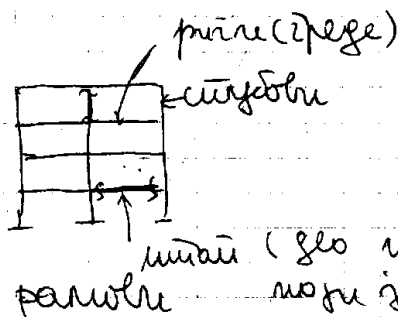 ригле (греде)
стубови
штап (део
рамови